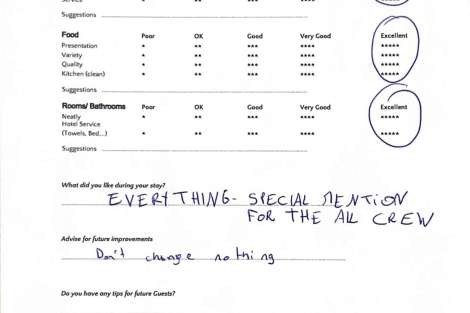 Service * ** *** ****
Suggestions
Food Poor OK Good Very Good Excellent
Presentation * ** *** **** *****
Variety * ** *** **** *****
Quality * ** *** **** *****
Kitchen (clean) * ** *** **** *****
Suggestions
Rooms/ Bathrooms Poor OK Good Very Good Excellent
Neatly * ** *** **** *****
Hotel Service
(Towels, Bed...) * ** *** **** *****
Suggestions
What did you like during your stay?
EVERYTHING - SPECIAL MENTION
FOR THE ALL CREW
Advise for future improvements
Don't change nothing
Do you have any tips for future Guests?